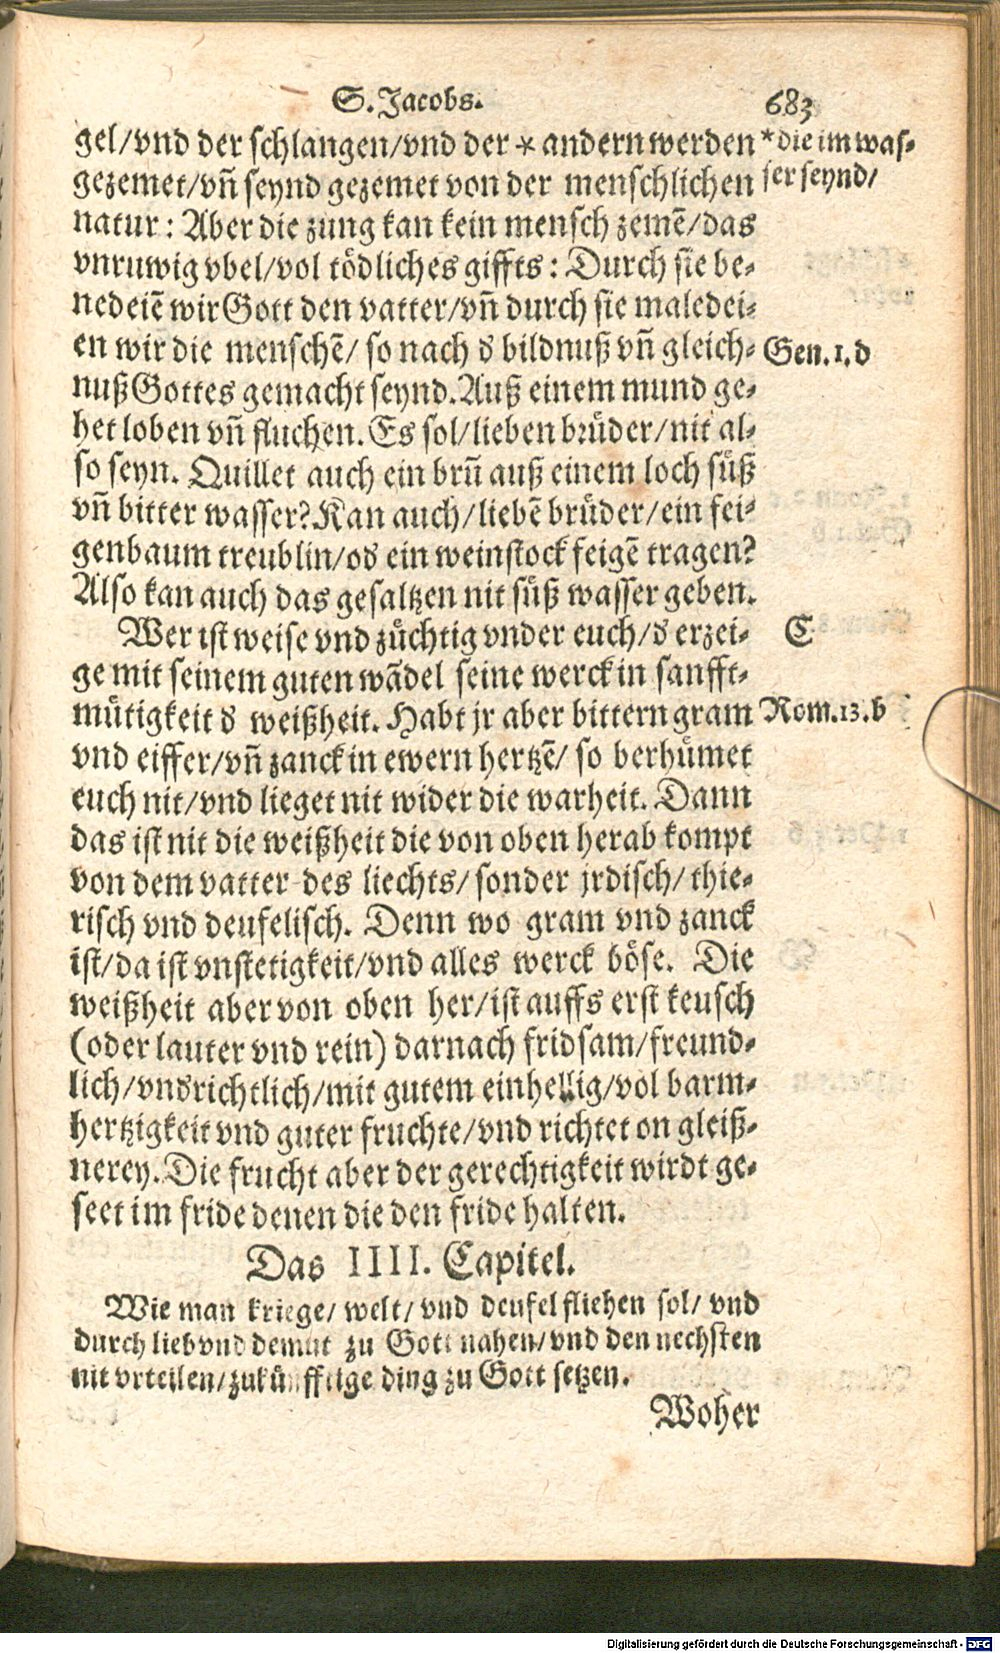 S. Jacobs. 683
gel/vnd der schlangen/vnd der * andern werden
gezemet/vñ seynd gezemet von der menschlichen
natur: Aber die zung kan kein mensch zemẽ/das
vnruwig vbel/vol tödliches giffts: Durch sie be-
nedeiẽ wir Gott den vatter/vñ durch sie maledei-
en wir die menschẽ/ so nach d bildnuß vñ gleich-
nuß Gottes gemacht seynd. Auß einem mund ge-
het loben vñ fluchen. Es sol/lieben brüder/nit al-
so seyn. Quillet auch ein brũ auß einem loch süß
vñ bitter wasser? Kan auch/liebẽ brüder/ein fei-
genbaum treublin/od ein weinstock feigẽ tragen?
Also kan auch das gesaltzen nit süß wasser geben.
Wer ist weise vnd züchtig vnder euch/d erzei-
ge mit seinem guten wãdel seine werck in sanfft-
mütigkeit d weißheit. Habt jr aber bittern gram
vnd eiffer/vñ zanck in ewern hertzẽ/ so berhümet
euch nit/vnd lieget nit wider die warheit. Dann
das ist nit die weißheit die von oben herab kompt
von dem vatter des liechts/ sonder jrdisch/ thie-
risch vnd deufelisch. Denn wo gram vnd zanck
ist/da ist vnstetigkeit/vnd alles werck böse. Die
weißheit aber von oben her/ist auffs erst keusch
(oder lauter vnd rein) darnach fridsam/freund-
lich/vndrichtlich/mit gutem einhellig/vol barm-
hertzigkeit vnd guter fruchte/vnd richtet on gleiß-
nerey. Die frucht aber der gerechtigkeit wirdt ge-
seet im fride denen die den fride halten.
Das IIII. Capitel.
Wie man kriege/ welt/ vnd deufel fliehen sol/ vnd
durch lieb vnd demut zu Gott nahen/vnd den nechsten
nit vrteilen/zukünfftige ding zu Gott setzen.
Woher
* die im was-
ser seynd/
Gen. 1. d
C
Rom. 13. b
Digitalisierung gefördert durch die Deutsche Forschungsgemeinschaft - DFG